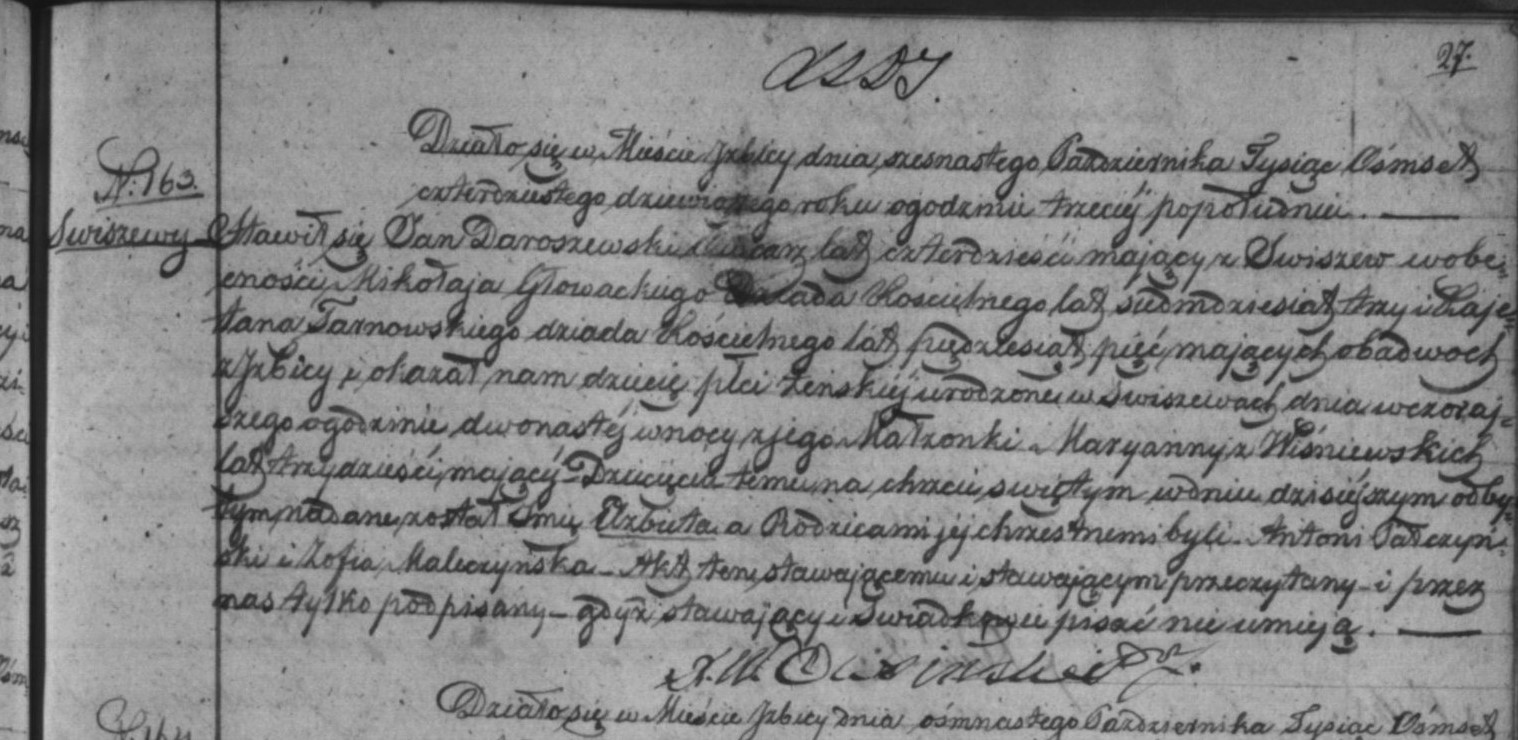 27.
N. 163.
Swiszewy
Działo się w Mieście Izbicy dnia szesnastego Października Tysiąc Ośmset
czterdziestego dziewiątego roku o godzinie trzeciéj popołudniu. —
Stawił się Jan Daroszewski lat czterdzieści mający z Swiszew w obe=
cności Mikołaja Głowackiego Dziada Kościelnego lat siedmdziesiąt trzy i Kaje=
tana Tarnowskiego dziada Kościelnego lat pięдziesiąt pięć mających obadwóch
z Izbicy i okazał nam dziecię płci żeńskiéj urodzone w Swiszewach dnia wczoraj=
szego o godzinie dwonastéj w nocy z jego Małżonki Maryanny z Wiśniewskich
lat trzydzieści mający – Dziecięciu temu na chrzcie świętym w dniu dzisiéjszym odby=
tym nadane został Imię Elzbieta a Rodzicami jéj chrzestnemi byli – Antoni Pałczyń=
ski i Zofia Maleczyńska – Akt ten stawającemu i stawającym przeczytany – i przez
nas tylko podpisany – gdyż stawający i Świadkowie pisać nie umieją. —
Działo się w Mieście Izbicy dnia ośmnastego Października Tysiąc Ośmset